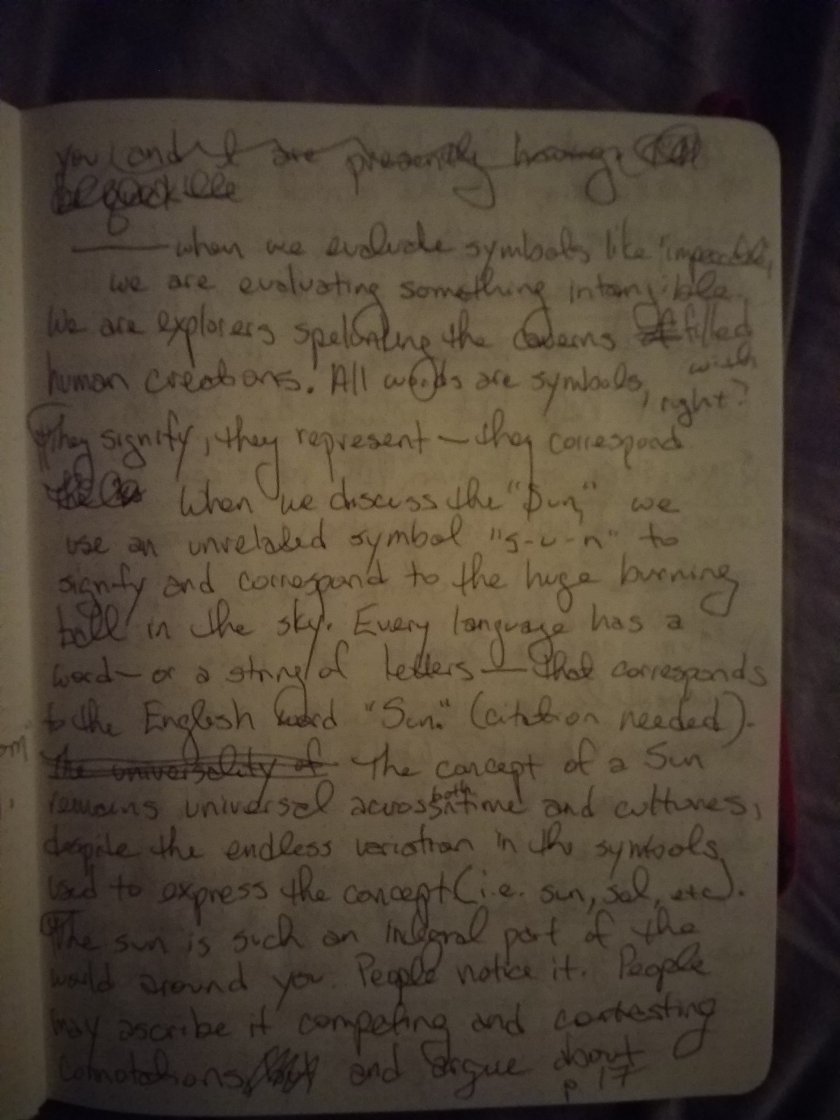 you and I are presently having
when we evaluate symbols like "impossible,"
we are evaluating something intangible.
We are explorers spelunking the caverns filled
with
human creations. All words are symbols,
right?
They signify, they represent — they correspond
When we discuss the "Sun," we
use an unrelated symbol "s-u-n" to
signify and correspond to the huge burning
ball in the sky. Every language has a
word — or a string of letters — that corresponds
to the English word "Sun." (citation needed).
The universality of The concept of a Sun
remains universal across both time and cultures,
despite the endless variation in the symbols
used to express the concept (i.e. sun, sol, etc).
The sun is such an integral part of the
world around you. People notice it. People
may ascribe it competing and contesting
connotations and argue about
p. 17